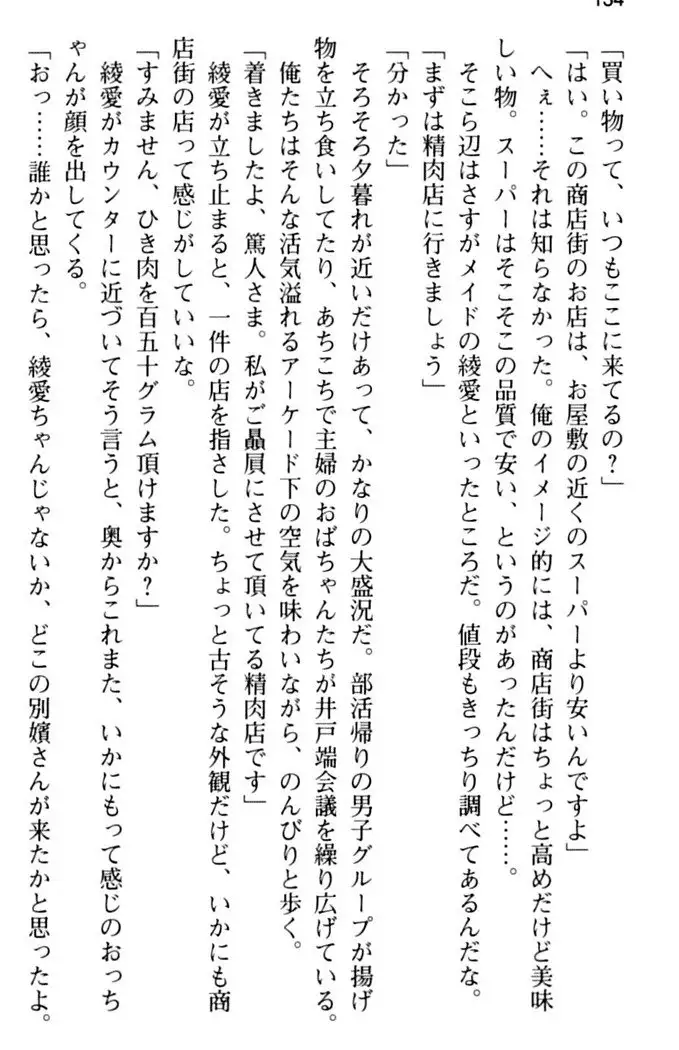 「買い物って、いつもここに来てるの？」
「はい。この商店街のお店は、お屋敷の近くのスーパーより安いんですよ」
へぇ……それは知らなかった。俺のイメージ的には、商店街はちょっと高めだけど美味
しい物。スーパーはそこそこの品質で安い、というのがあったんだけど……。
そこら辺はさすがメイドの綾愛といったところだ。値段もきっちり調べてあるんだな。
「まずは精肉店に行きましょう」
「分かった」
そろそろ夕暮れが近いだけあって、かなりの大盛況だ。部活帰りの男子グループが揚げ
物を立ち食いしてたり、あちこちで主婦のおばちゃんたちが井戸端会議を繰り広げている。
俺たちはそんな活気溢れるアーケード下の空気を味わいながら、のんびりと歩く。
「着きましたよ、篤人さま。私がご贔屓にさせて頂いてる精肉店です」
綾愛が立ち止まると、一件の店を指さした。ちょっと古そうな外観だけど、いかにも商
店街の店って感じがしていいな。
「すみません、ひき肉を百五十グラム頂けますか？」
綾愛がカウンターに近づいてそう言うと、奥からこれまた、いかにもって感じのおっち
ゃんが顔を出してくる。
「おっ……誰かと思ったら、綾愛ちゃんじゃないか、どこの別嬪さんが来たかと思ったよ。